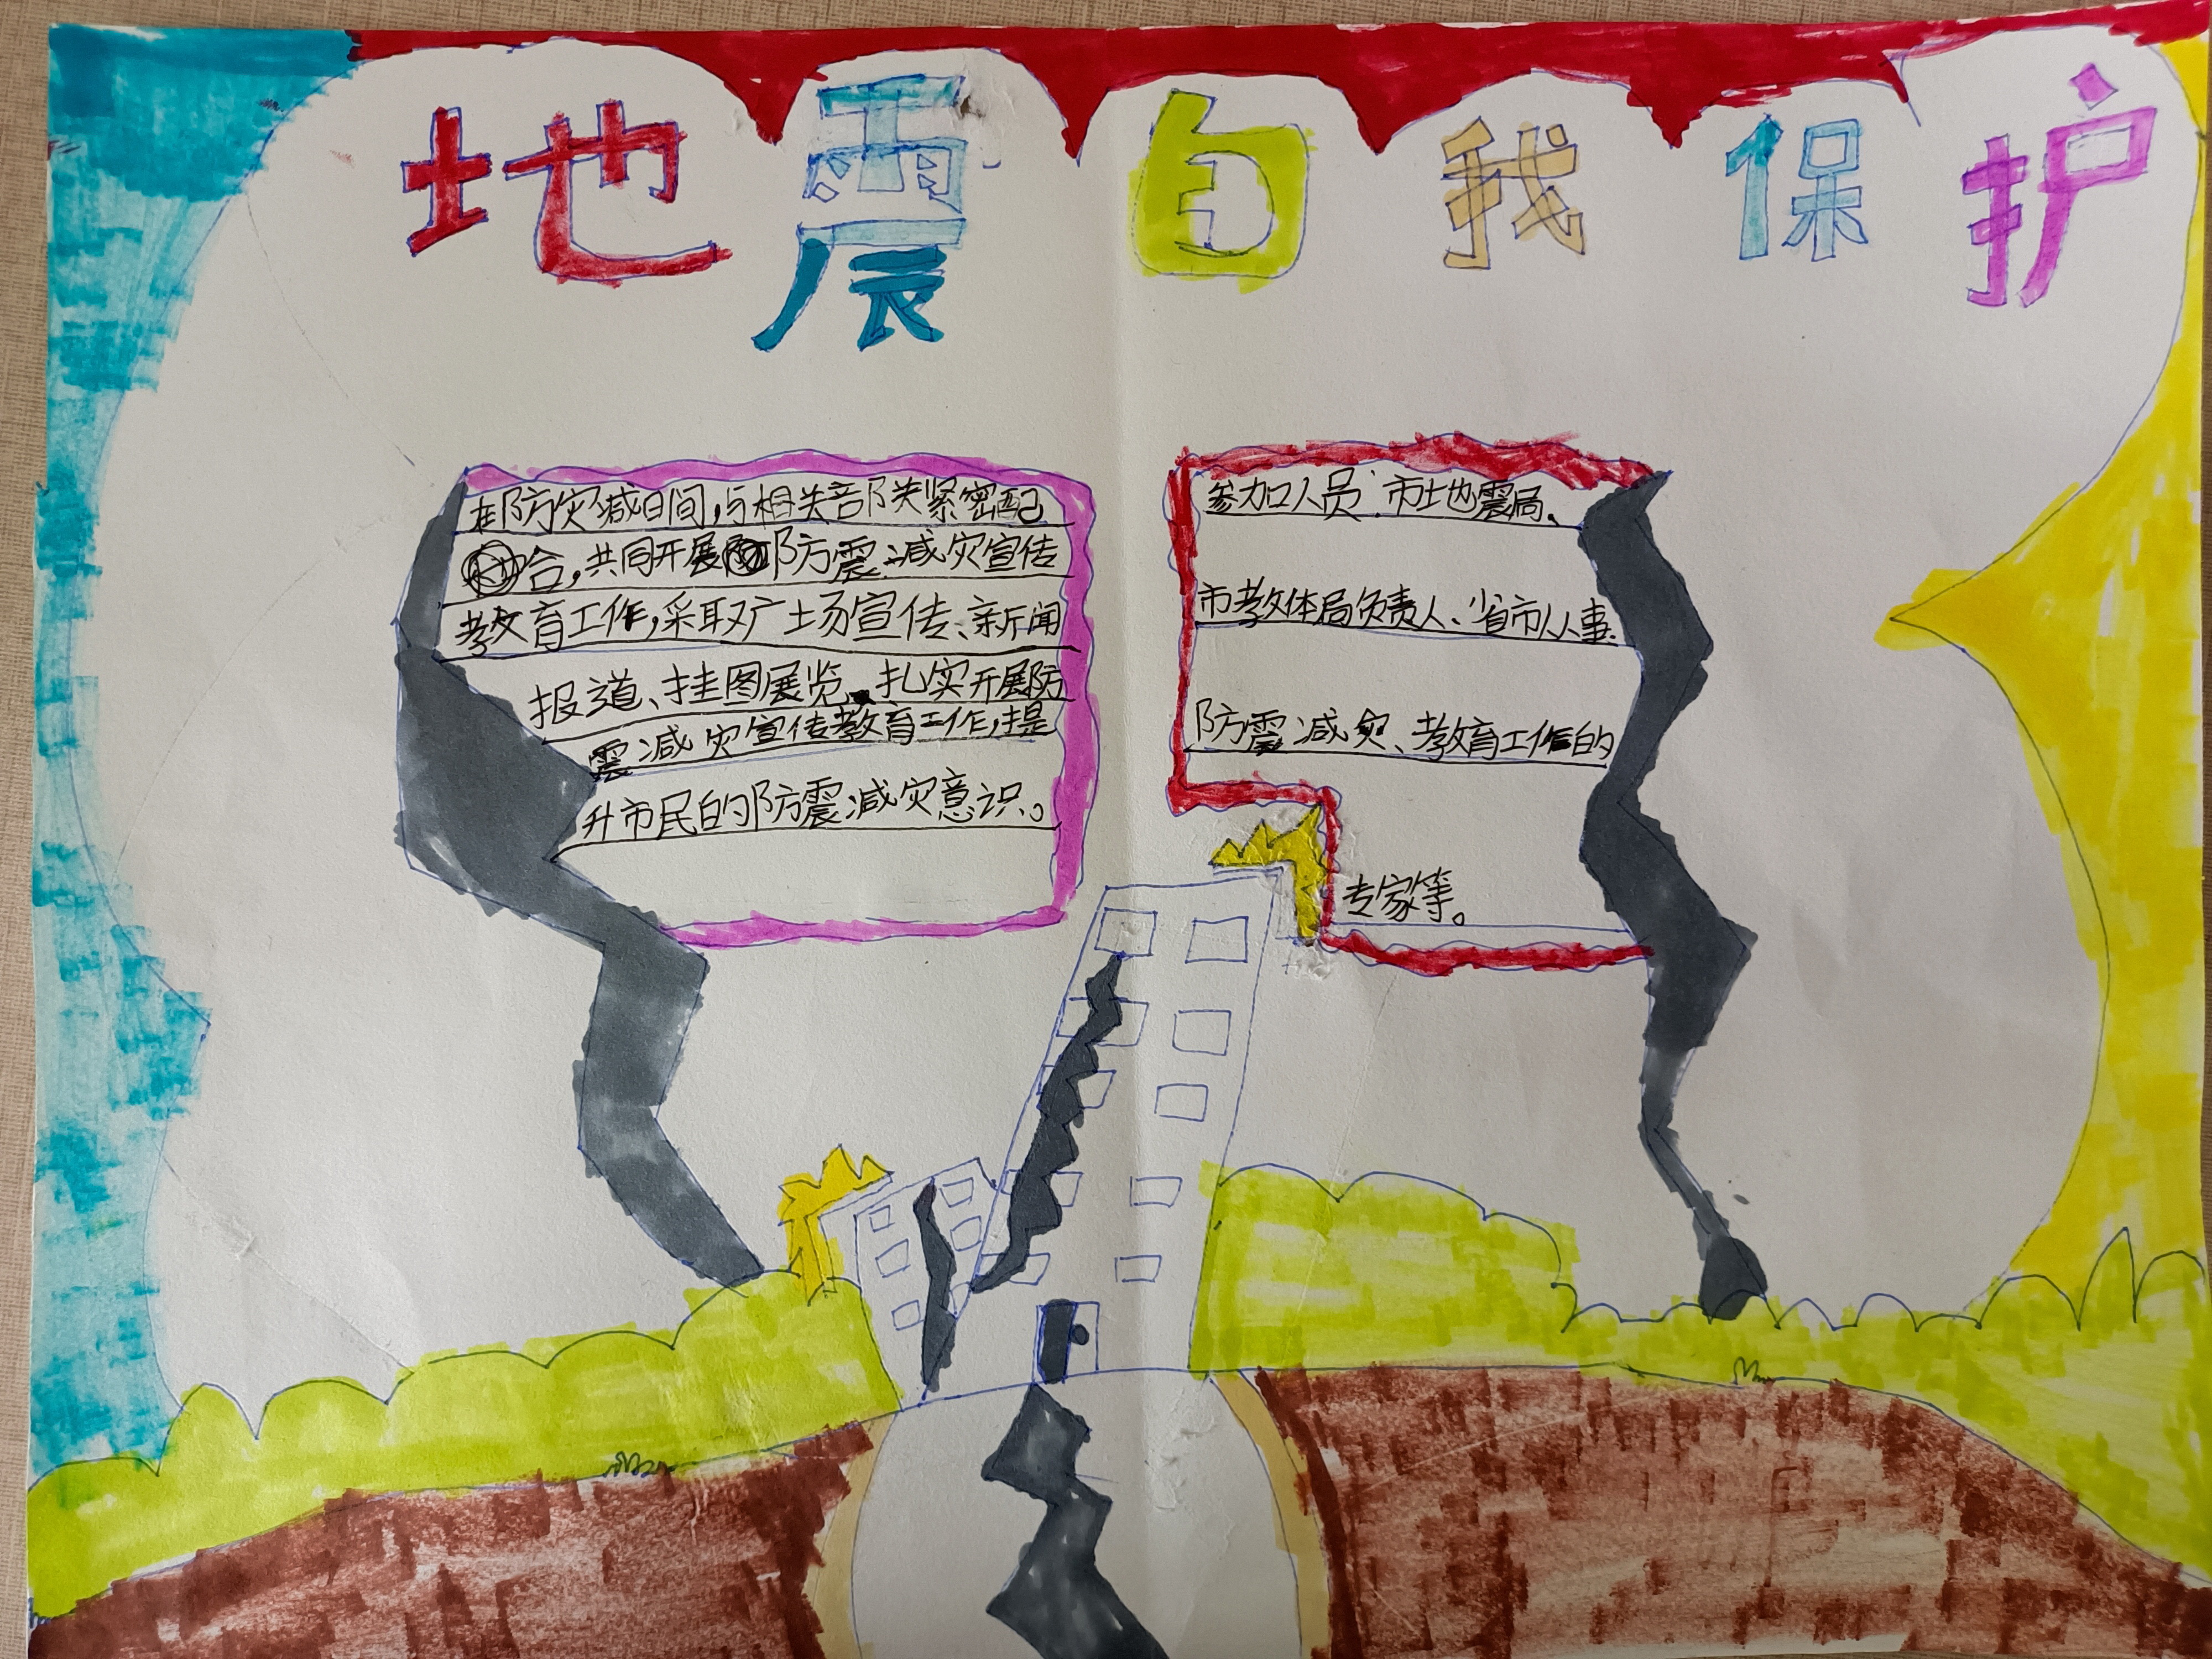 地震自我保护
在防灾减日间，与相关部门关紧密配
合，共同开展防震减灾宣传
教育工作，采取广场宣传、新闻
报道、挂图展览、扎实开展防
震减灾宣传教育工作，提
升市民的防震减灾意识。
参加人员：市地震局、
市教体局负责人、省市从事
防震减灾、教育工作的
专家等。